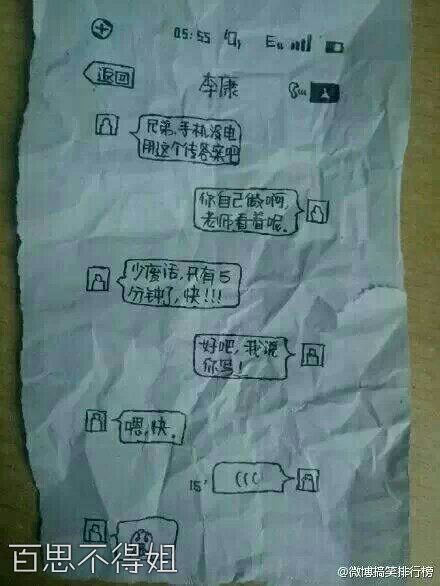 05:55
返回
李康
兄弟,手机没电
用这个传答案吧
你自己做啊,
老师看着呢.
少废话,只有5
分钟了,快!!!
好吧,我说
你写!
嗯,快.
15'
(((
百思不得姐
@微博搞笑排行榜